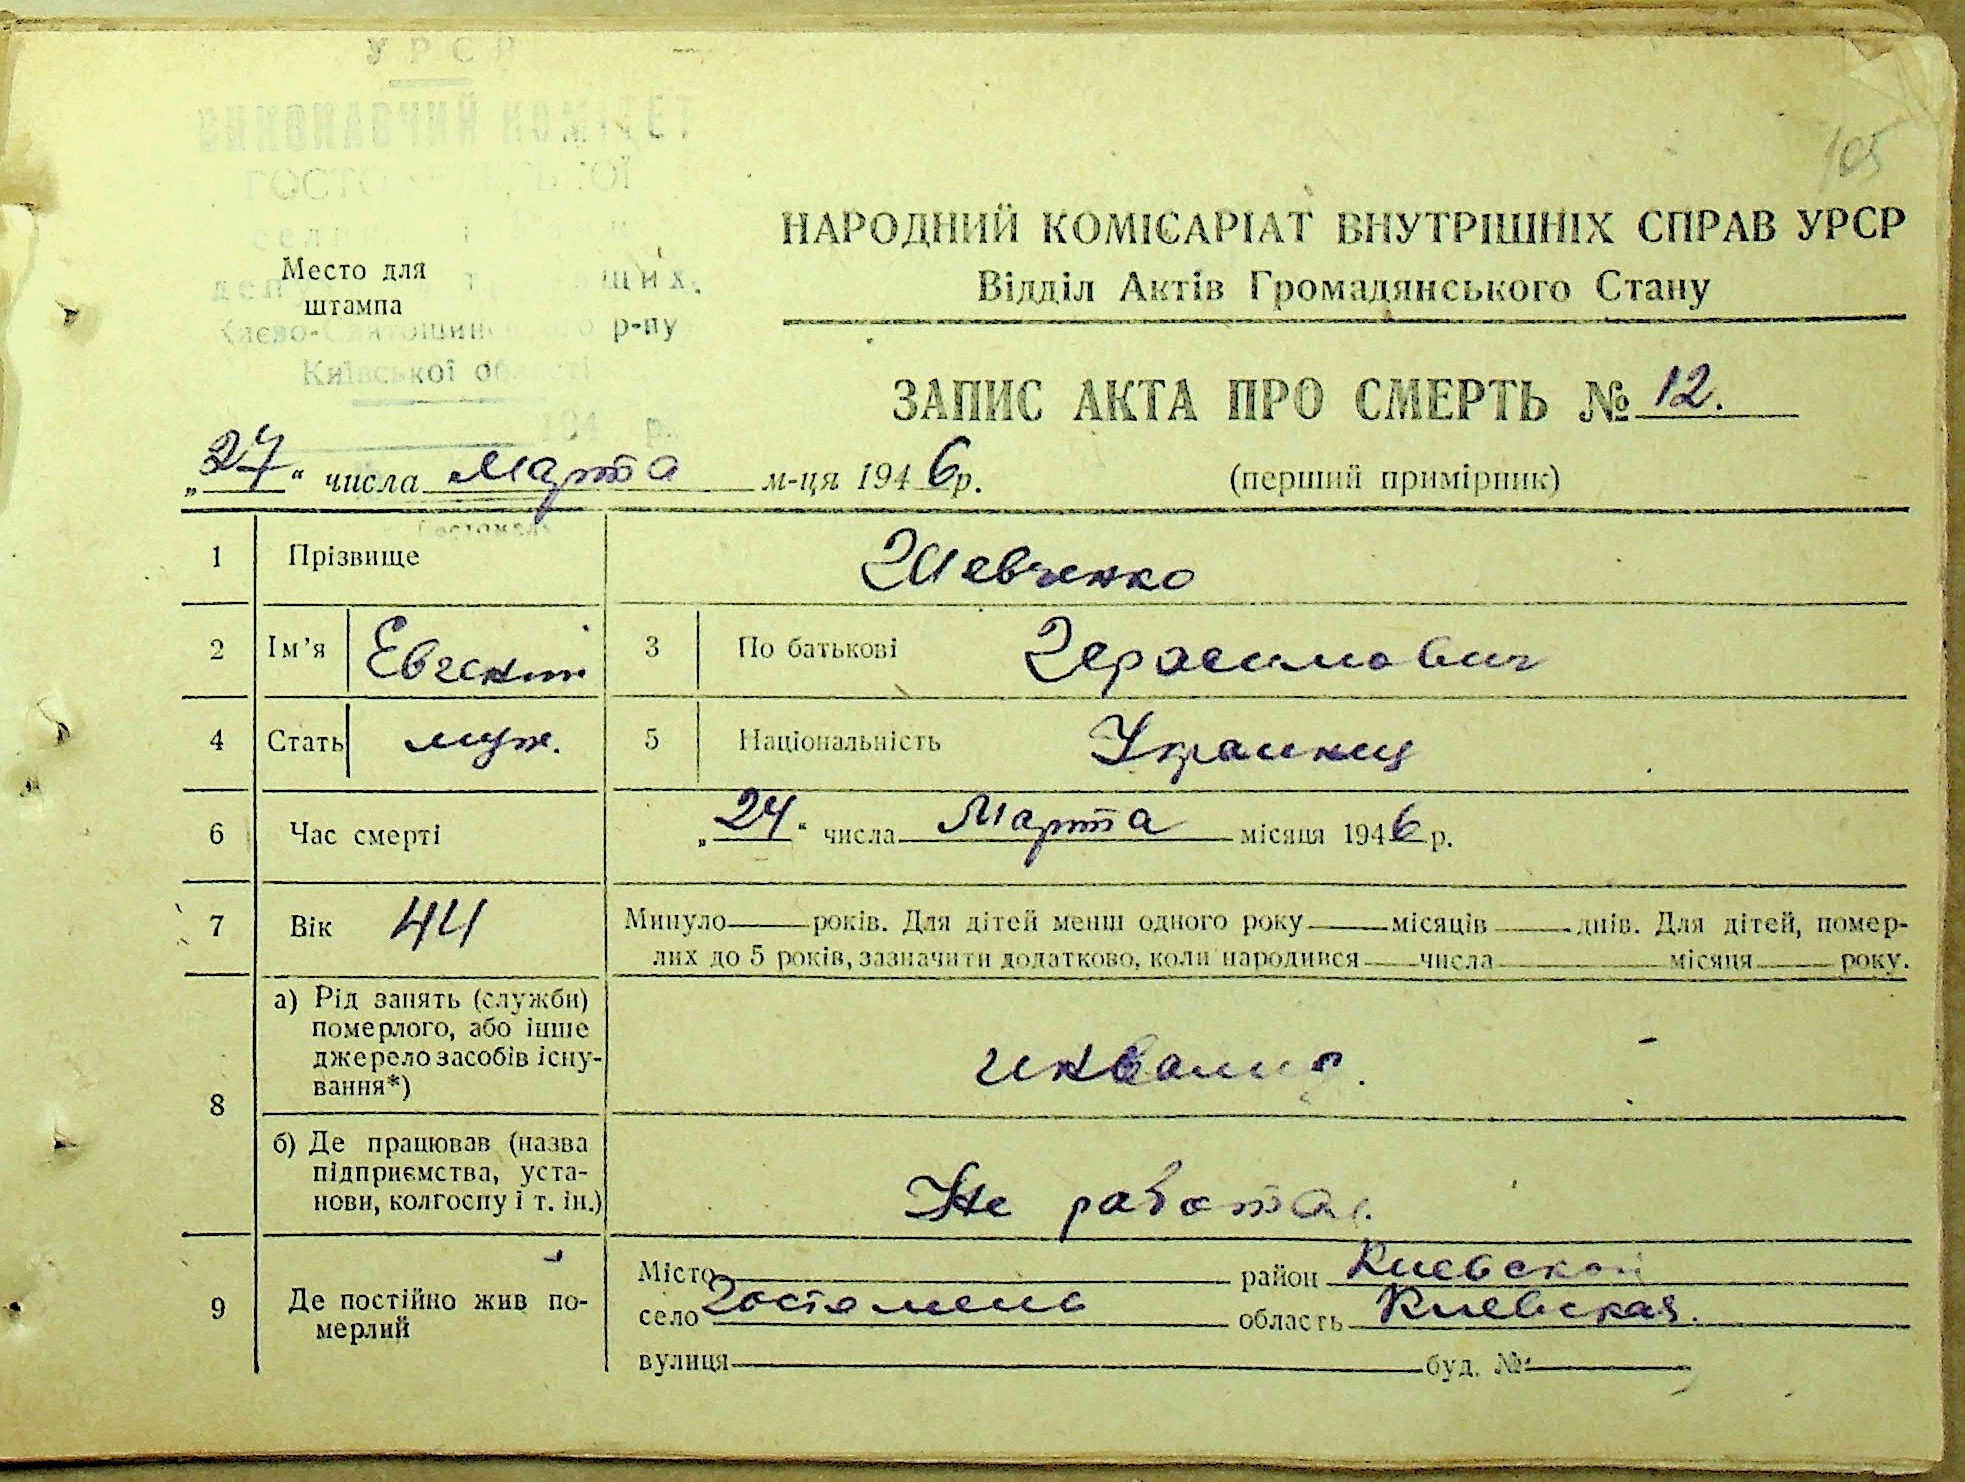 УРСР
105
НАРОДНИЙ КОМІСАРІАТ ВНУТРІШНІХ СПРАВ УРСР
Відділ Актів Громадянського Стану
Место для
штампа
р-ну
Київської області
ЗАПИС АКТА ПРО СМЕРТЬ № 12.
„27“ числа Марта м-ця 1946 р.
(перший примірник)
1 Прізвище Шевченко
2 Ім’я Евгений 3 По батькові Герасимович
4 Стать муж. 5 Національність Украинец
6 Час смерті „24“ числа Марта місяця 1946 р.
7 Вік 44 Минуло років. Для дітей менш одного року місяців днів. Для дітей, помер-
лих до 5 років, зазначити додатково, коли народився числа місяця року.
8 а) Рід занять (служби)
померлого, або інше
джерело засобів існу-
вання*)
инвалид.
б) Де працював (назва
підприємства, уста-
нови, колгоспу і т. ін.)
Не работал.
9 Де постійно жив по-
мерлий
Місто район Киевской
село Гостомель область Киевская.
вулиця буд. №